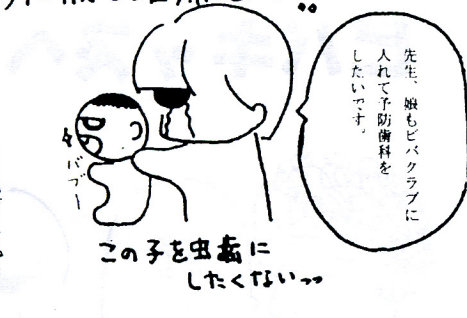 先生、娘もビバクラブに
入れて予防歯科を
したいです。
バブー
この子を虫歯に
したくないっっ